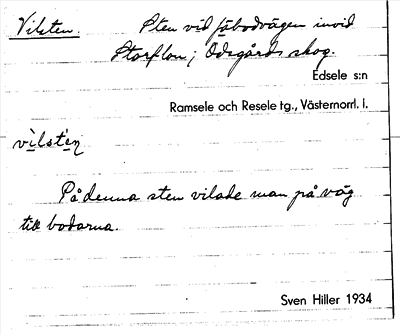 Vilsten. Sten vid fäbodvägen invid
Storflon; Odsgårds skog.
Edsele s:n
Ramsele och Resele tg., Västernorrl. l.
vìlstén
På denna sten vilade man på väg
till bodarna.
Sven Hiller 1934